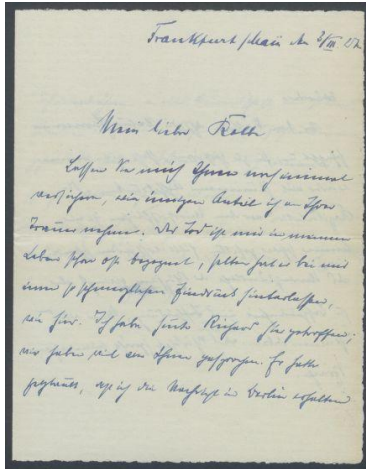 Frankfurt / Main den 2/III. 27.
Mein lieber Kolbe
Lassen Sie mich Ihnen noch einmal
versichern, wie innigen Anteil ich an Ihrer
Trauer nehme. Der Tod ist mir in meinem
Leben schon oft begegnet, selten hat er bei mir
einen so schmerzlichen Eindruck hinterlassen,
wie hier. Ich habe heute Richard hier getroffen;
wir haben viel von Ihnen gesprochen. Er hatte
geglaubt, dass ich die Nachricht in Berlin erhalten